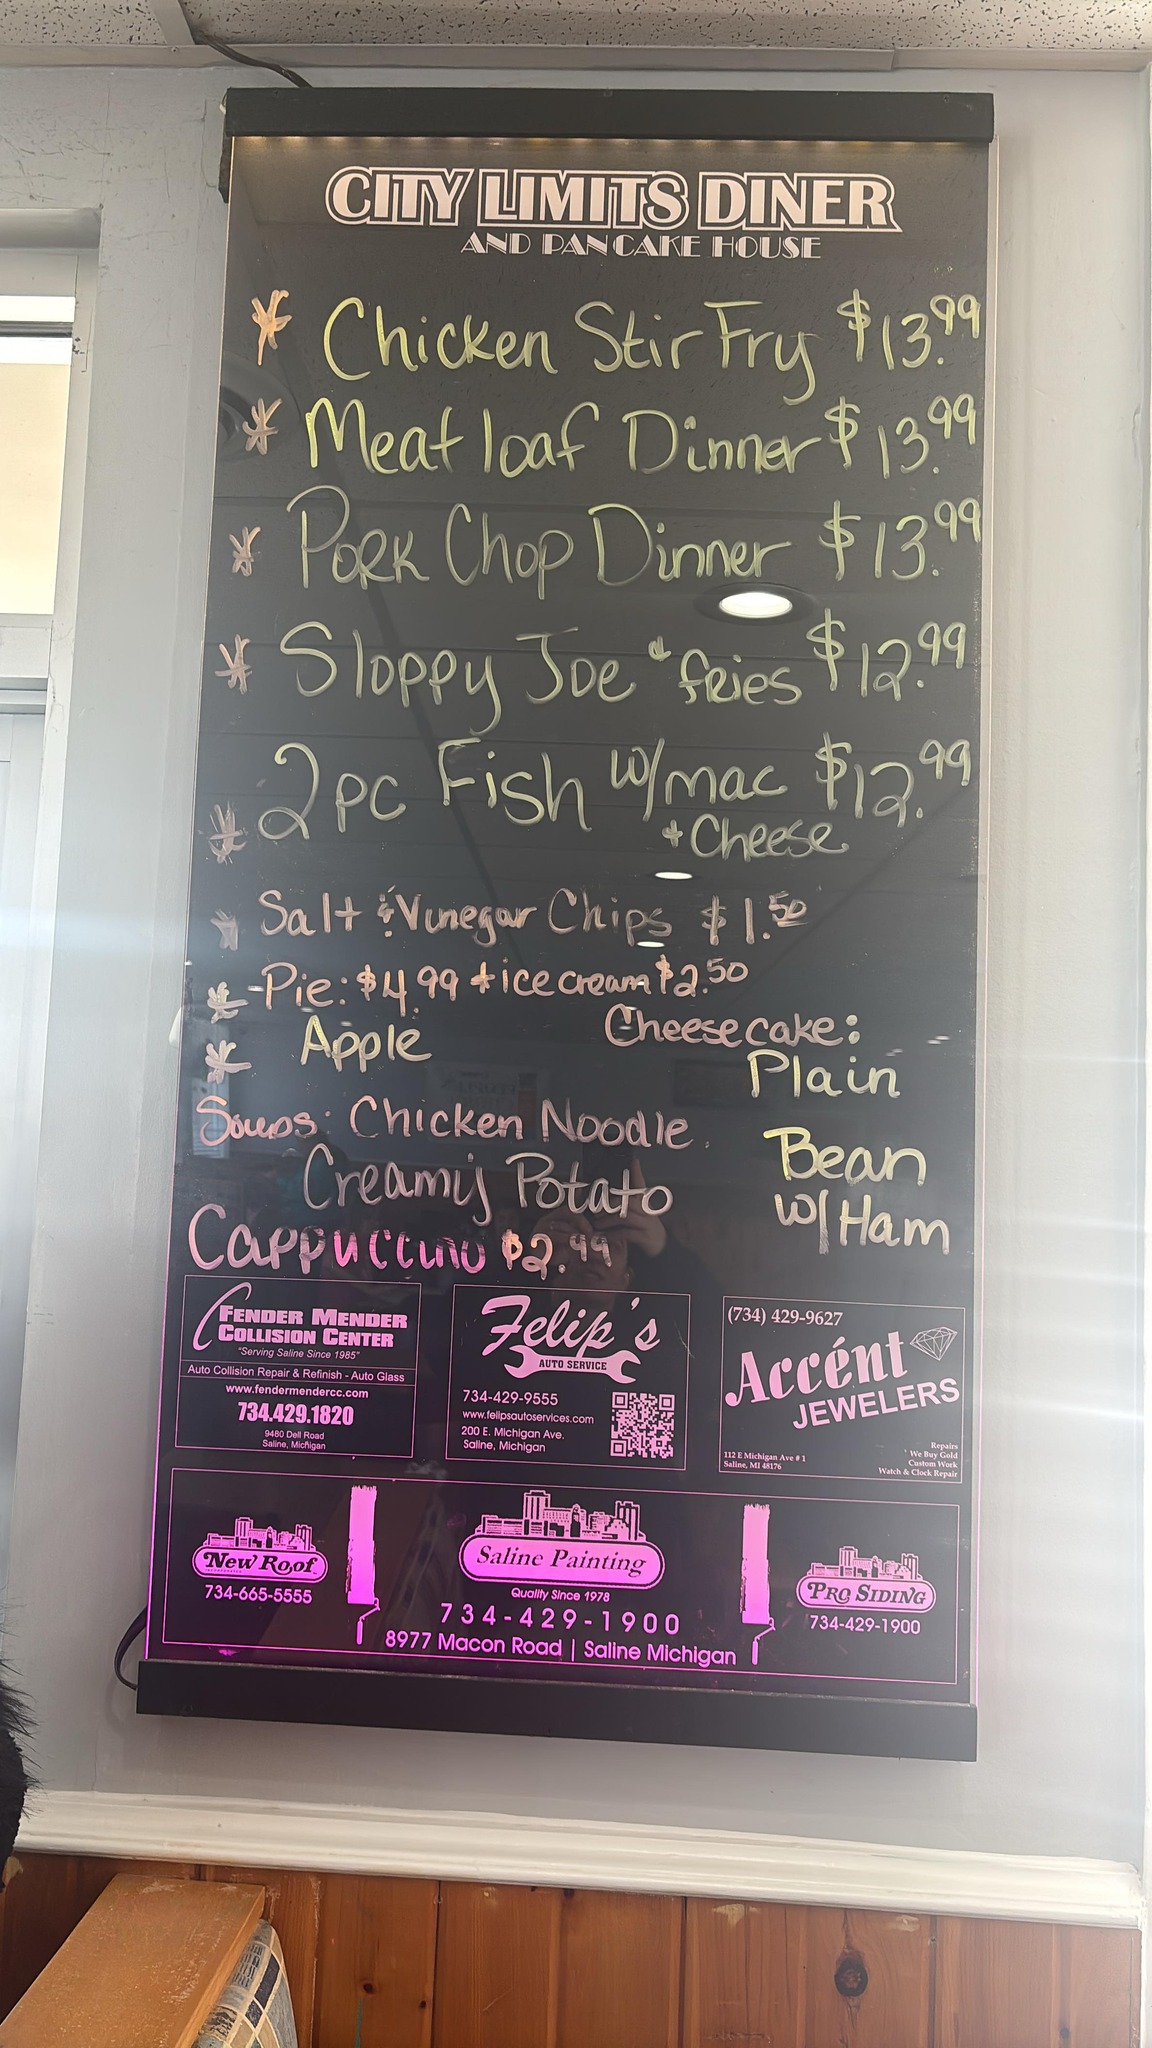 CITY LIMITS DINER
AND PANCAKE HOUSE
* Chicken Stir Fry $13.99
* Meat loaf Dinner $13.99
* Pork Chop Dinner $13.99
* Sloppy Joe & fries $12.99
* 2pc Fish w/mac $12.99
+ Cheese
* Salt & Vinegar Chips $1.50
* Pie: $4.99 + ice cream $2.50
* Apple
Cheesecake:
Plain
Soups: Chicken Noodle
Creamy Potato
Bean
w/Ham
Cappuccino $2.99
FENDER MENDER
COLLISION CENTER
"Serving Saline Since 1985"
Auto Collision Repair & Refinish - Auto Glass
www.fendermendercc.com
734.429.1820
9480 Dell Road
Saline, Michigan
Felip's
AUTO SERVICE
734-429-9555
www.felipsautoservices.com
200 E. Michigan Ave.
Saline, Michigan
(734) 429-9627
Accént
JEWELERS
112 E Michigan Ave # 1
Saline, MI 48176
Repairs
We Buy Gold
Custom Work
Watch & Clock Repair
New Roof
734-665-5555
Saline Painting
Quality Since 1978
734-429-1900
8977 Macon Road | Saline Michigan
PRO SIDING
734-429-1900